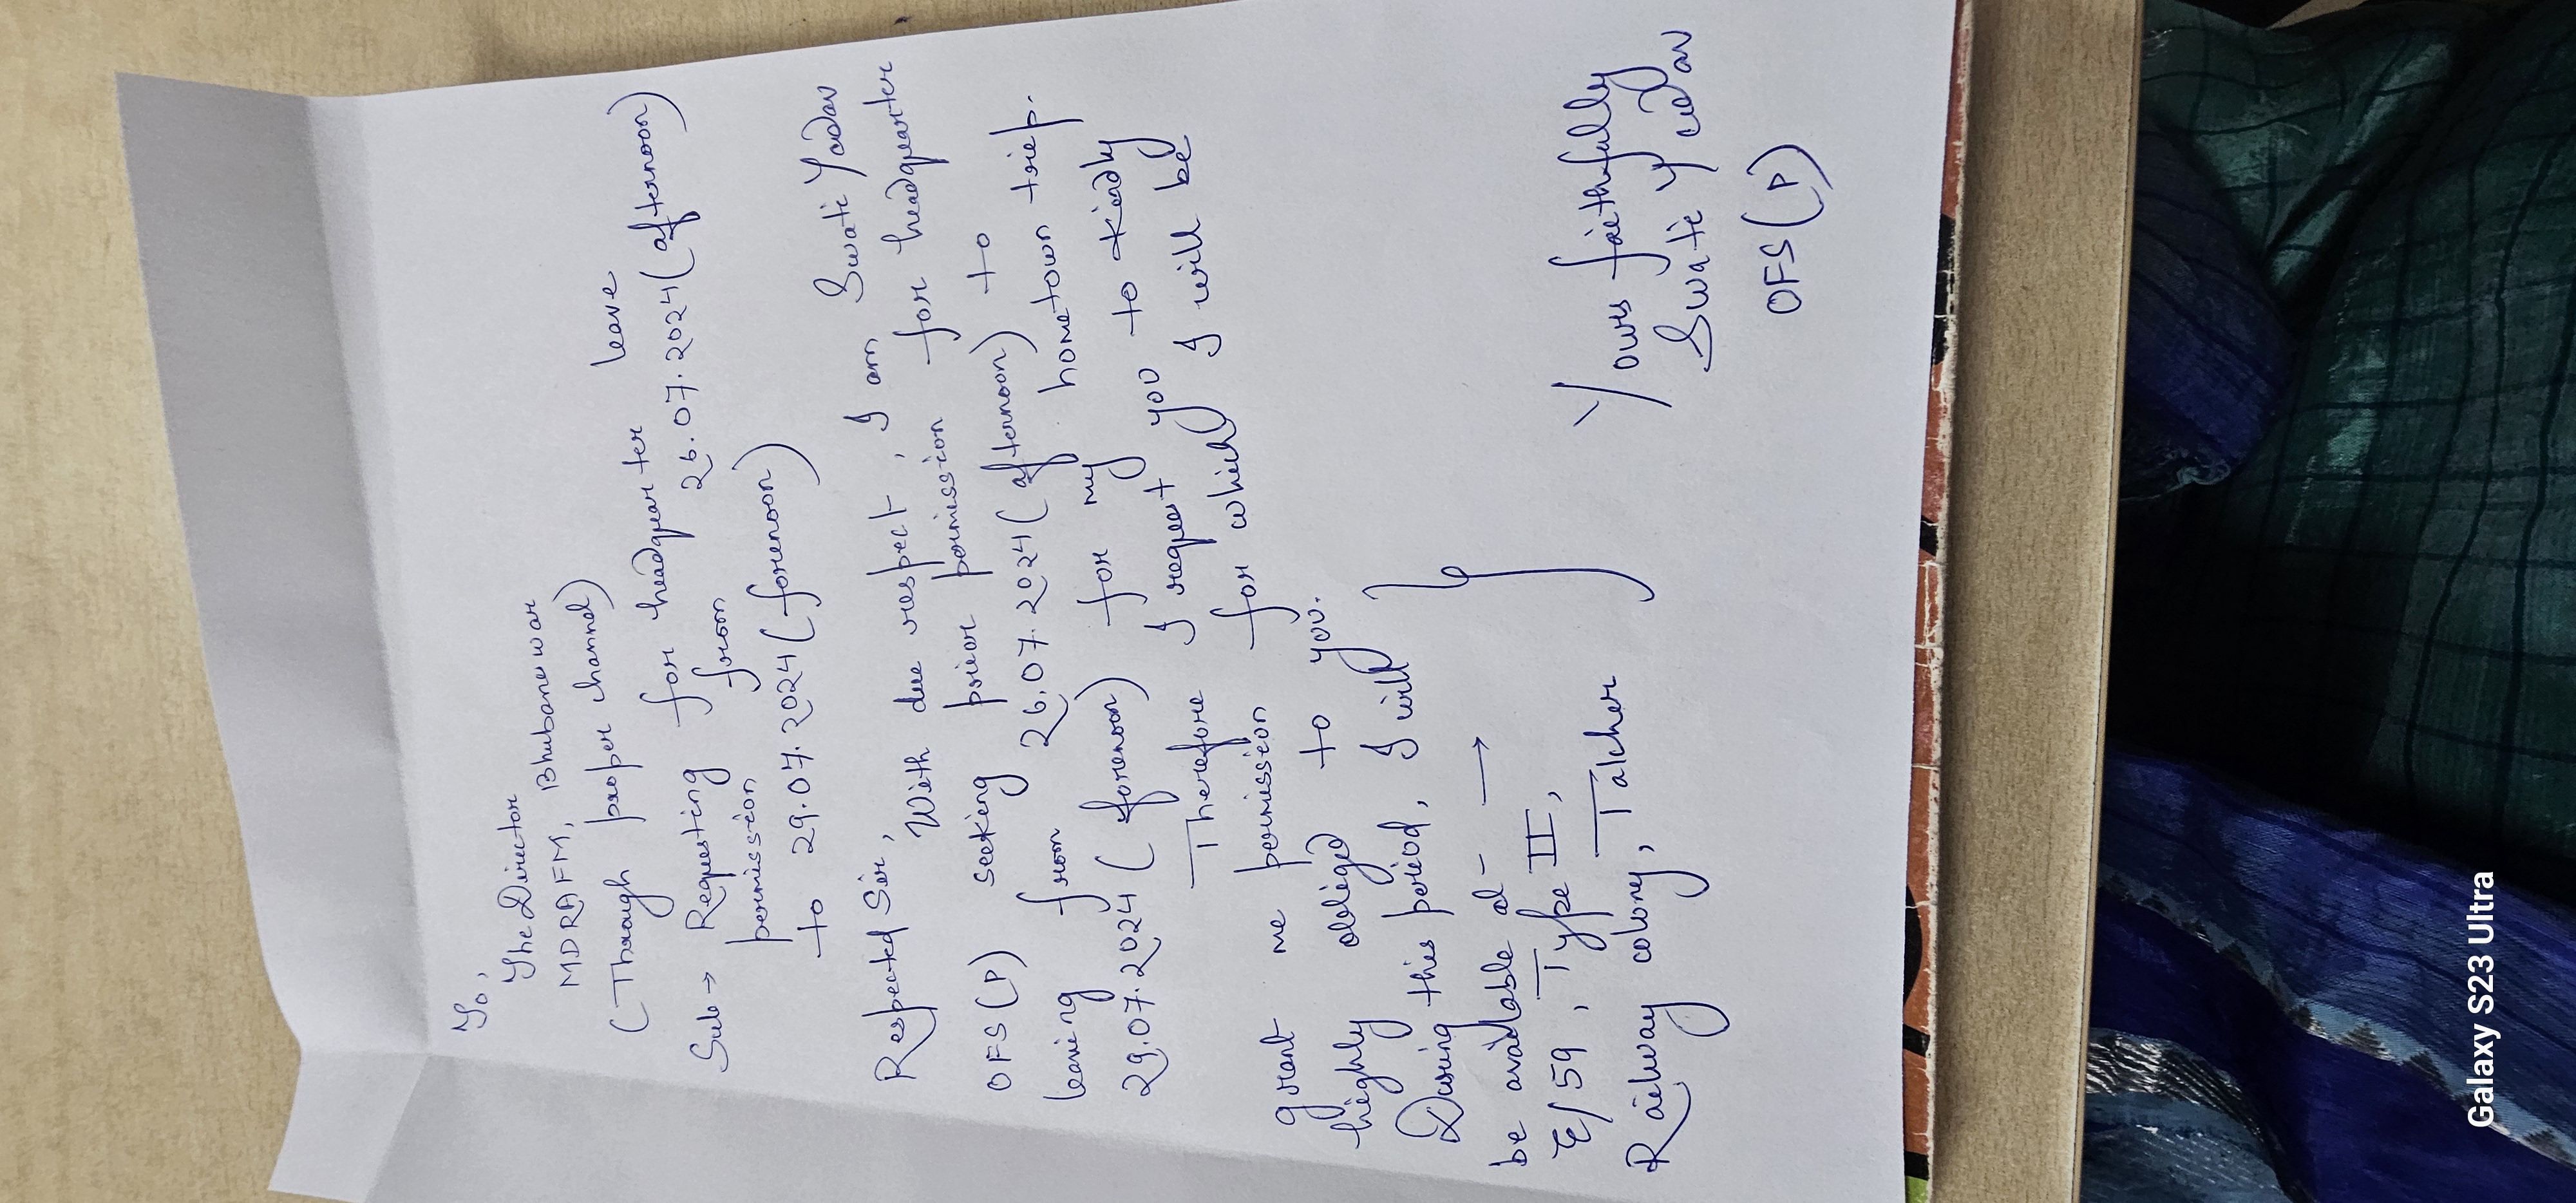 To,
The Director
MDRAFM, Bhubaneswar
(Through proper channel)
Sub → Requesting for headquarter leave
permission from 26.07.2024 (afternoon)
to 29.07.2024 (forenoon)
Respected Sir,
With due respect, I am Swati Yadav
OFS(P) seeking prior permission for headquarter
leaving from 26.07.2024 (afternoon) to
29.07.2024 (forenoon) for my hometown trip.
Therefore I request you to kindly
grant me permission for which I will be
highly obliged to you.
During this period, I will
be available at - →
E/59, Type II,
Railway colony, Talcher
Yours faithfully
Swati Yadav
OFS(P)
Galaxy S23 Ultra